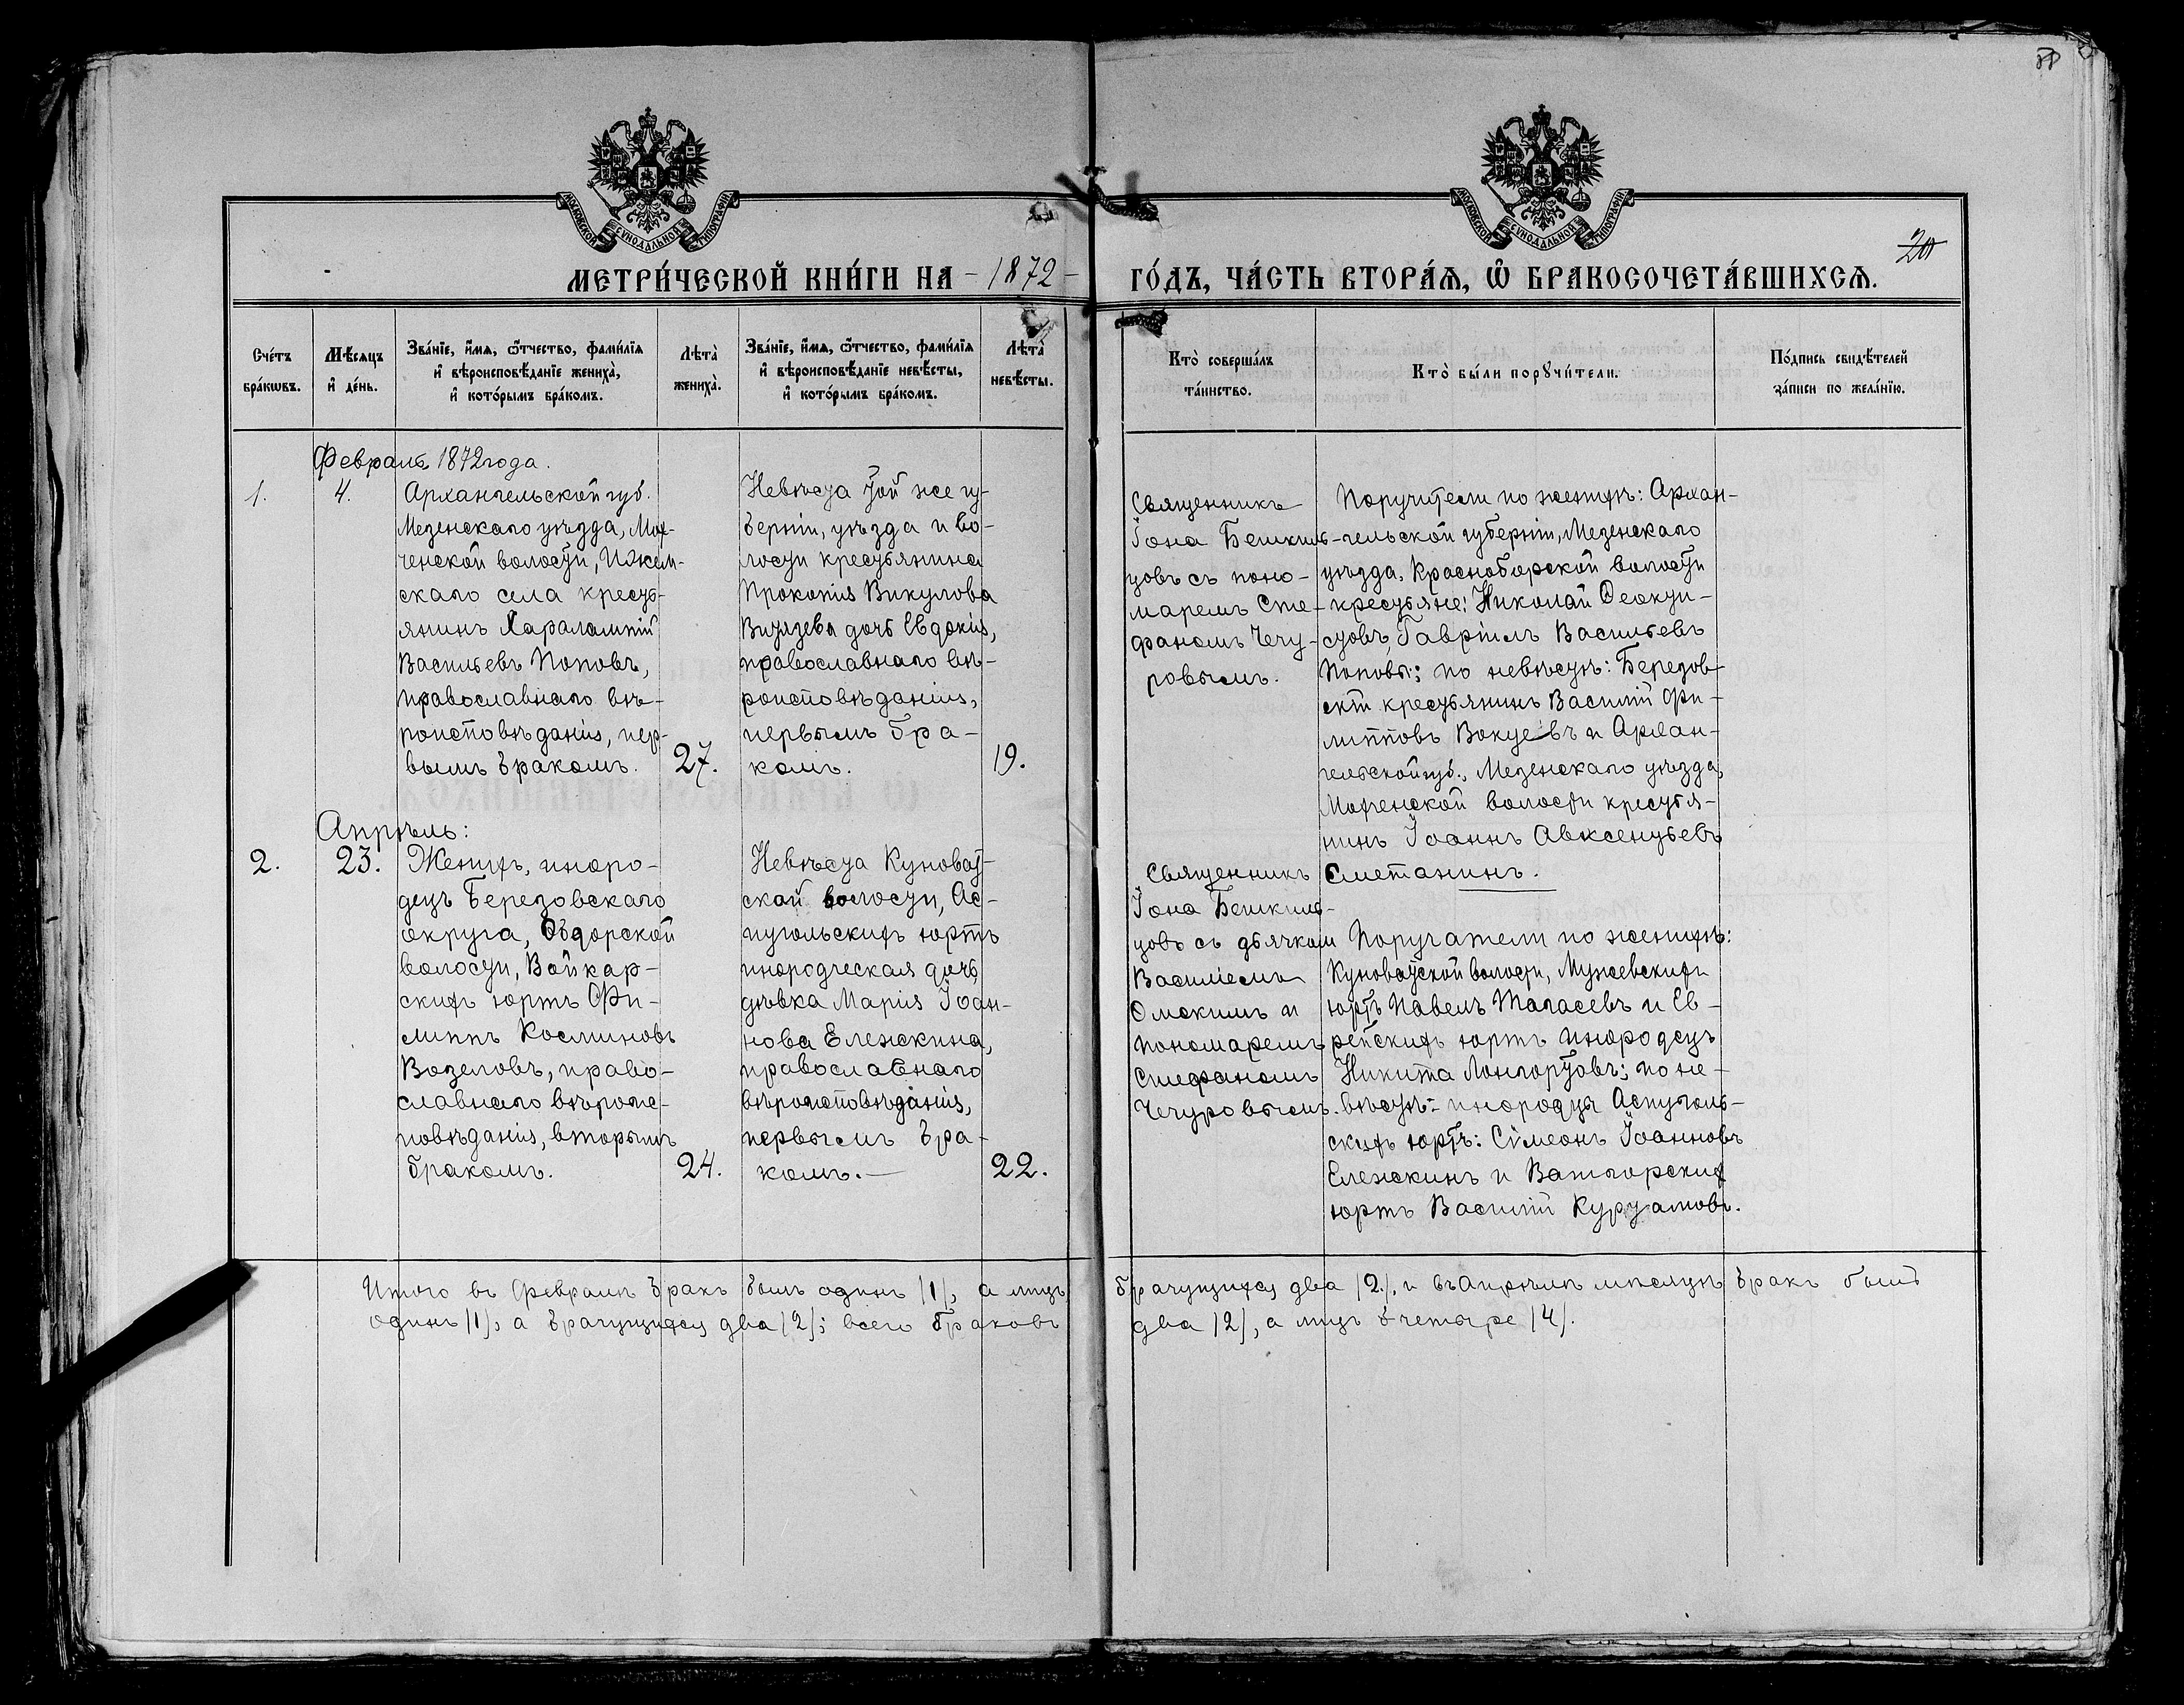 МОСКОВСКОЙ СѴНОДАЛЬНОЙ ТИПОГРАФІИ.
МОСКОВСКОЙ СѴНОДАЛЬНОЙ ТИПОГРАФІИ.
20
МЕТРИ́ЧЕСКОЙ КНИ́ГИ НА - 1872 -
ГО́ДЪ, ЧА́СТЬ ВТОРА́Ѧ, Ѿ БРАКОСОЧЕТА́ВШИХСѦ.
Сче́тъ
бра́кѡвъ.
Мѣ́сѧцъ
и҆ де́нь.
Зва́нїе, и҆́мѧ, ѻ҆́тчество, фами́лїѧ
и҆ вѣроисповѣ́данїе жениха̀,
и҆ кото́рымъ бра́комъ.
Лѣта̀
жениха̀.
Зва́нїе, и҆́мѧ, ѻ҆́тчество, фами́лїѧ
и҆ вѣроисповѣ́данїе невѣ́сты,
и҆ кото́рымъ бра́комъ.
Лѣта̀
невѣ́сты.
Кто̀ соверша́лъ
та́инство.
Кто̀ бы́ли порꙋчи́тели.
По́дпись свидѣ́телей
за́писи по жела́нїю.
Февраль 1872 года.
1.
4.
Архангельской губ.
Мезенскаго уѣзда, Мох-
ченской волости, Ижем-
скаго села кресть-
янинъ Харалампій
Васильевъ Поповъ,
православнаго вѣ-
роисповѣданія, пер-
вымъ бракомъ.
27.
Невѣста той же гу-
берніи, уѣзда и во-
лости крестьянина
Прокопія Викулова
Визязева дочь Евдокія,
православнаго вѣ-
роисповѣданія,
первымъ бра-
комъ.
19.
Священникъ
Іона Бешкиль-
цовъ съ поно-
маремъ Сте-
фаномъ Чечу-
ровымъ.
Поручители по женихѣ: Архан-
гельской губерніи, Мезенскаго
уѣзда, Красноборской волости
крестьяне: Николай Феокти-
стовъ, Гавріилъ Васильевъ
Поповы; по невѣстѣ: Березов-
скій крестьянинъ Василій Фи-
липповъ Вокуевъ и Архан-
гельской губ., Мезенскаго уѣзда,
Мохченской волости крестья-
нинъ Іоаннъ Авксентьевъ
Сметанинъ.
Апрѣль:
2.
23.
Женихъ, иноро-
децъ Березовскаго
округа, Обдорской
волости, Войкар-
скихъ юртъ Фи-
липпъ Косминовъ
Возеловъ, право-
славнаго вѣроис-
повѣданія, вторымъ
бракомъ.
24.
Невѣста Куноват-
ской волости, Ас-
пугольскихъ юртъ
инородческая дочь,
дѣвка Марія Іоан-
нова Еленкина,
православнаго
вѣроисповѣданія,
первымъ бра-
комъ.
22.
Священникъ
Іона Бешкиль-
цовъ съ дьячкомъ
Василіемъ
Омскимъ и
пономаремъ
Стефаномъ
Чечуровымъ.
Поручатели по женихѣ:
Куноватской волости, Мужевскихъ
юртъ Павелъ Тагасевъ и Ев-
рейскихъ юртъ инородецъ
Никита Лонгортовъ; по не-
вѣстѣ: инородцы Аспуголь-
скихъ юртъ: Сѵмеонъ Іоанновъ
Еленкинъ и Ватгорскихъ
юртъ Василій Куртямовъ.
Итого въ Февралѣ бракъ былъ одинъ /1/, а лицъ брачущихся два /2/, и въ Апрѣлѣ мѣсяцѣ бракъ былъ
одинъ /1/, а брачущихся два /2/; всего браковъ два /2/, а лицъ четыре /4/.